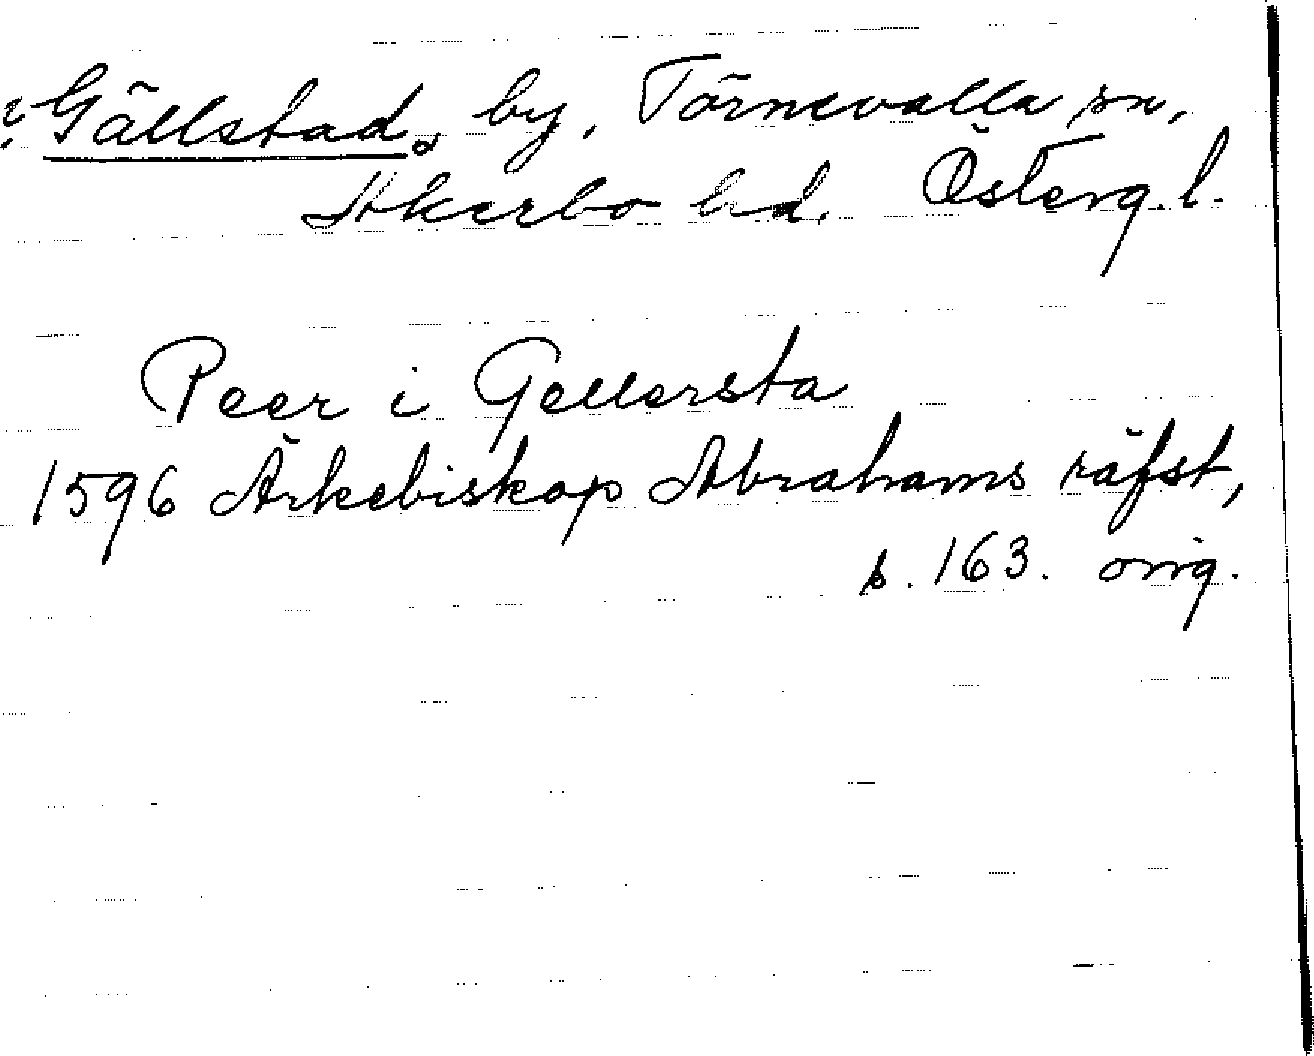 ? Gällstad, by, Törnevalla sn,
Åkerbo hd. Österg. l.
Peer i Gellersta
1596 Ärkebiskop Abrahams räfst,
s. 163. orig.